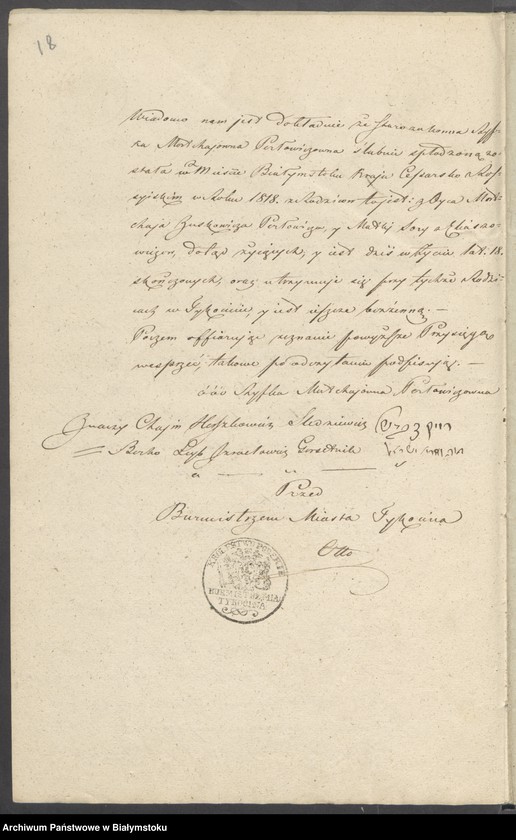 18
Wiadomo nam jest dokładnie że Starozakonna Szyf-
ka Mortchajowna Perłowiczowna ślubnie spłodzoną zo-
stała w Mieście Białymstoku Kraju Cesarsko Ros-
syiskim w Roku 1818. z Rodziców to jest: z Oyca Mort-
chaja Perłowicza, y Matki Sory z Eliaszo-
wiczow, dotąd żyjących, y jest dziś w życiu lat. 18.
skończonych, oraz utrzymuje się przy tychże Rodzi-
cach w Tykocinie y jest jeszcze bezżenną. —
Poczem offiarując zeznanie powyższe Przysięgą
wesprzeć, takowe po odczytaniu podpisują. —
ooo Szyfka Mortchajowna Perłowiczowna
Znaczy Chaim Herszkowicz Śledziewicz
= Berko Leyb Izraelowicz
Przed
Burmistrzem Miasta Tykocina
Otto
KRÓLESTWO POLSKIE
BURMISTRZ MIAS
TYKOCINA
Archiwum Państwowe w Białymstoku